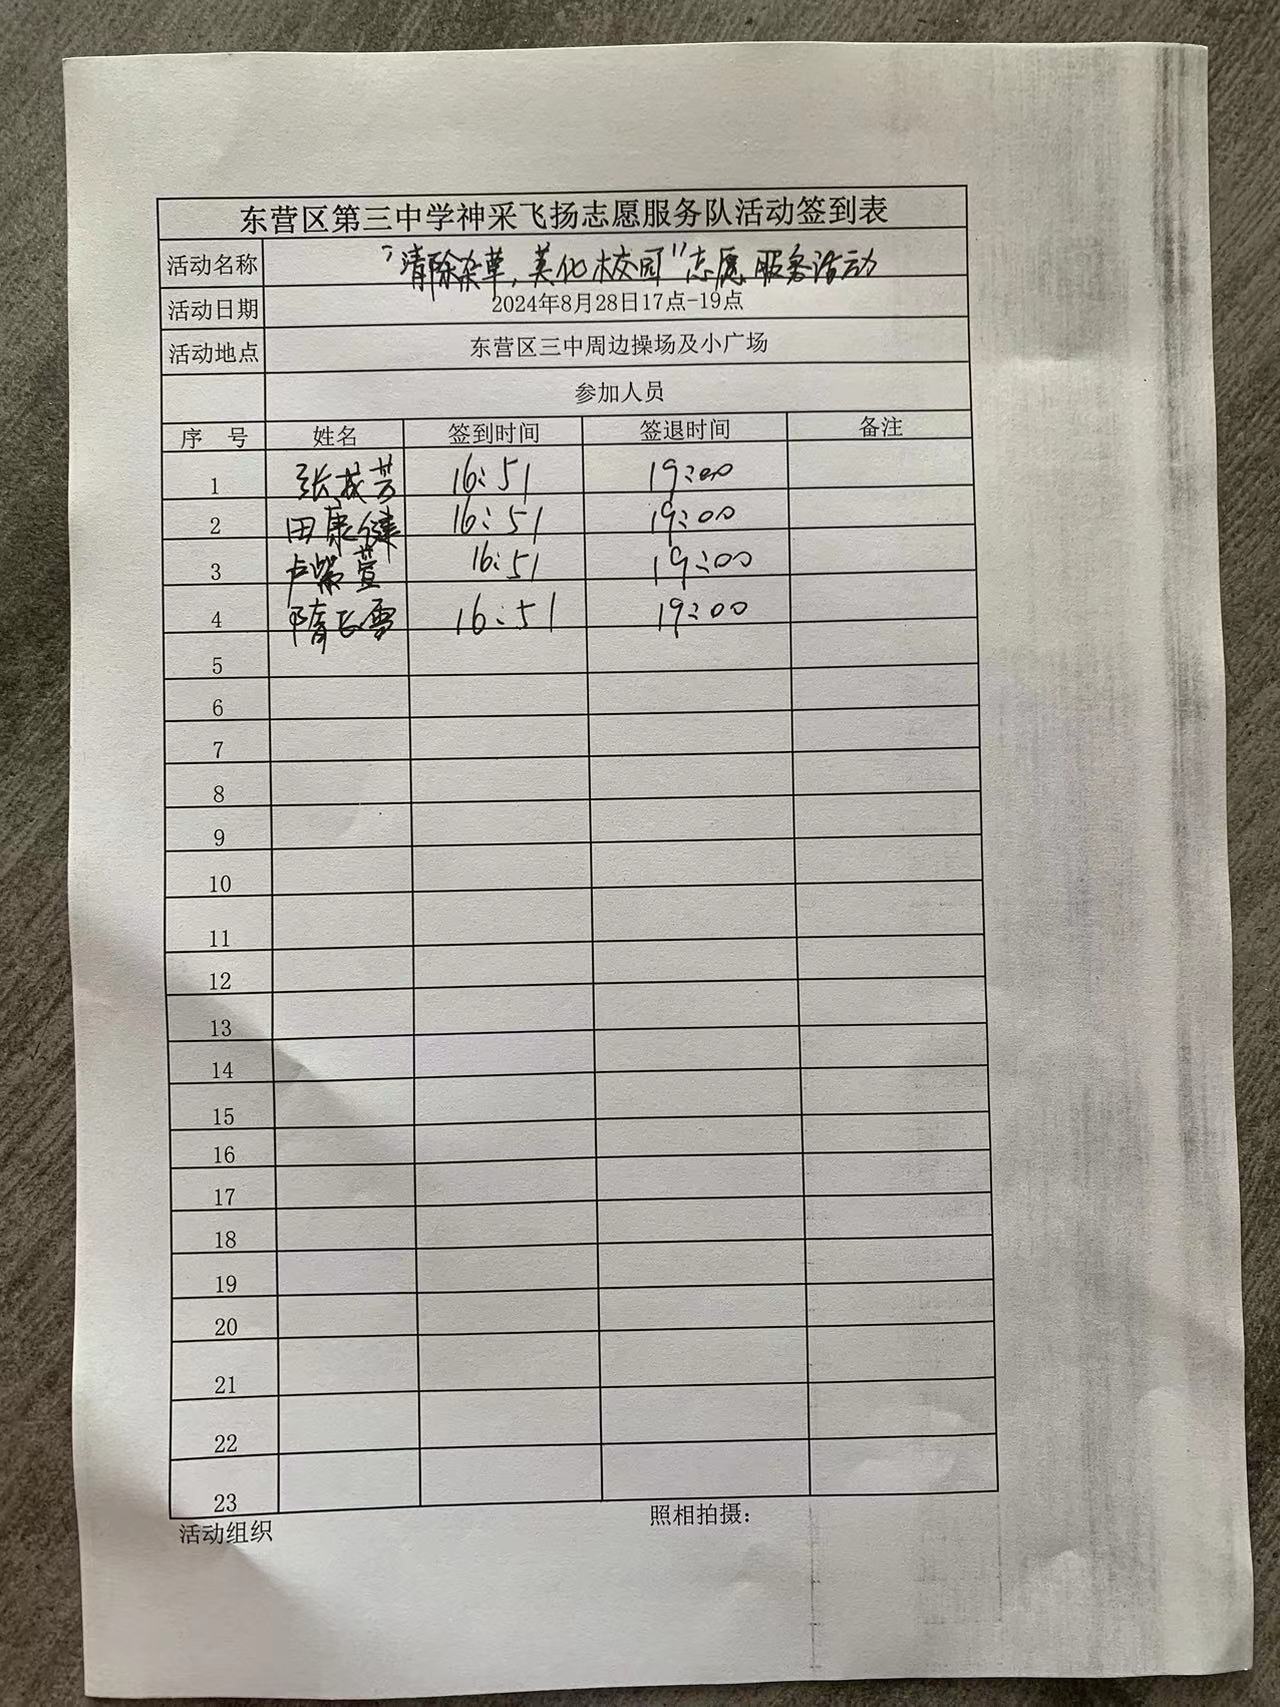 东营区第三中学神采飞扬志愿服务队活动签到表
活动名称 "清除杂草,美化校园"志愿服务活动
活动日期 2024年8月28日17点-19点
活动地点 东营区三中周边操场及小广场
参加人员
序 号 姓名 签到时间 签退时间 备注
1 张成芳 16:51 19:00
2 田康健 16:51 19:00
3 卢紫萱 16:51 19:00
4 隋长雪 16:51 19:00
5
6
7
8
9
10
11
12
13
14
15
16
17
18
19
20
21
22
23
活动组织 照相拍摄: